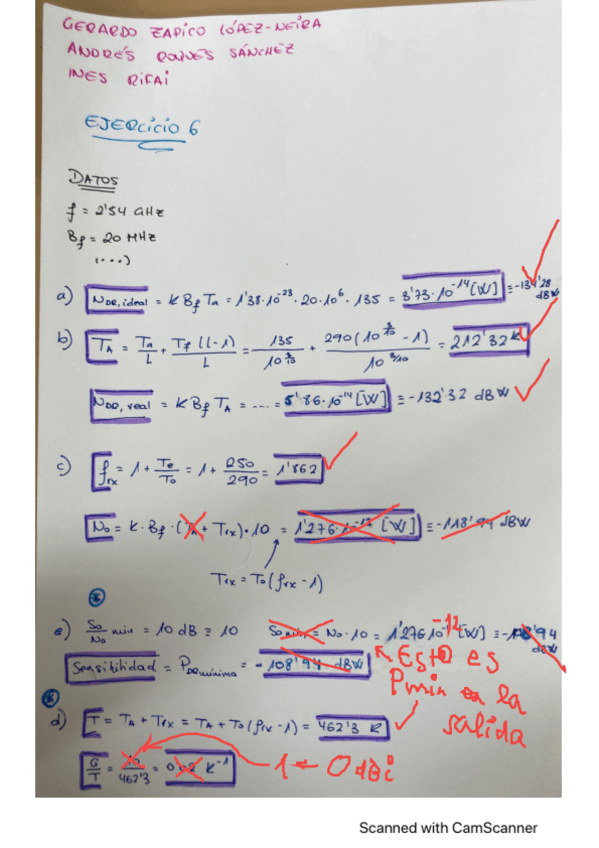 GERARDO ZAPICO LÓPEZ-NEIRA
ANDRÉS ROYUES SÁNCHEZ
INES RIFAI
EJERCICIO 6
DATOS
f = 2'54 GHz
Bf = 20 MHz
(...)
a) NDR, ideal = K Bf Ta = 1'38·10^-23 · 20·10^6 · 135 = 3'73·10^-14 [W] ≡ -134'28 dBW
b) TA = Ta/L + Tf(L-1)/L = 135/10^(3/10) + 290(10^(3/10) - 1)/10^(3/10) = 212'32 K
NDR, real = K Bf TA = .... = 5'86·10^-14 [W] ≡ -132'32 dBW
c) frx = 1 + Te/To = 1 + 250/290 = 1'862
No = K·Bf·(TA + Trx)·10 = 1'276·10^-12 [W] ≡ -118'94 dBW
Trx = To(frx - 1)
e) So/No min = 10 dB ≡ 10 So min = No·10 = 1'276 10^-12 [W] ≡ -108'94 dBW
Sensibilidad = PDRmínima = -108'94 dBW
Esto es
Pmin en la
salida
d) T = TA + Trx = TA + To(frx - 1) = 462'3 K
G/T = 10/462'3 = 0'02 K^-1 1 = 0 dBi
Scanned with CamScanner